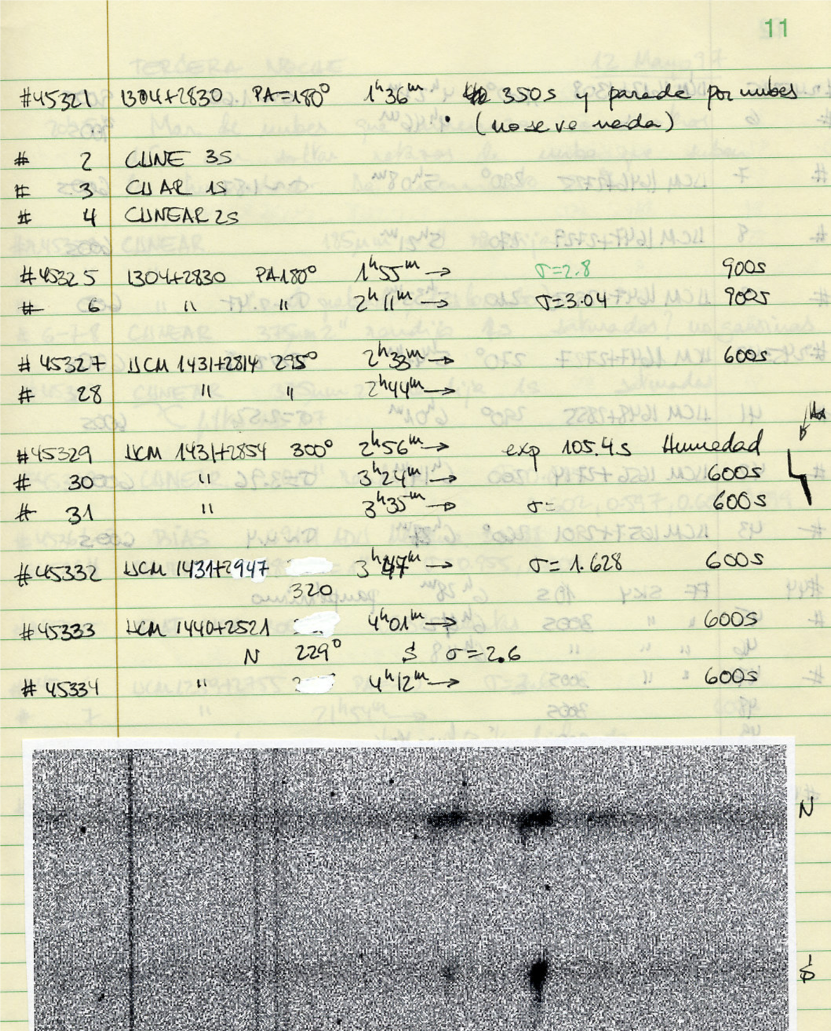 11
#45321 1304+2830 PA=180° 1ʰ36ᵐ 350s y parada por nubes
• (no se ve nada)
# 2 CUNE 3S
# 3 CUAR 1S
# 4 CUNEAR 2S
#45325 1304+2830 PA180° 1ʰ55ᵐ→ σ=2.8 900s
# 6 " " 2ʰ11ᵐ→ σ=3.04 900s
#45327 UCM 1431+2814 295° 2ʰ33ᵐ→ 600s
# 28 " " 2ʰ44ᵐ→
#45329 UCM 1431+2854 300° 2ʰ56ᵐ→ exp 105.4s Humedad
# 30 " 3ʰ24ᵐ→ 600s
# 31 " 3ʰ35ᵐ→ σ= 600s
#45332 UCM 1431+2947 3ʰ47ᵐ→ σ=1.628 600s
320
#45333 UCM 1440+2521 4ʰ01ᵐ→ 600s
N 229° S σ=2.6
#45334 " 4ʰ12ᵐ→ 600s
N
S